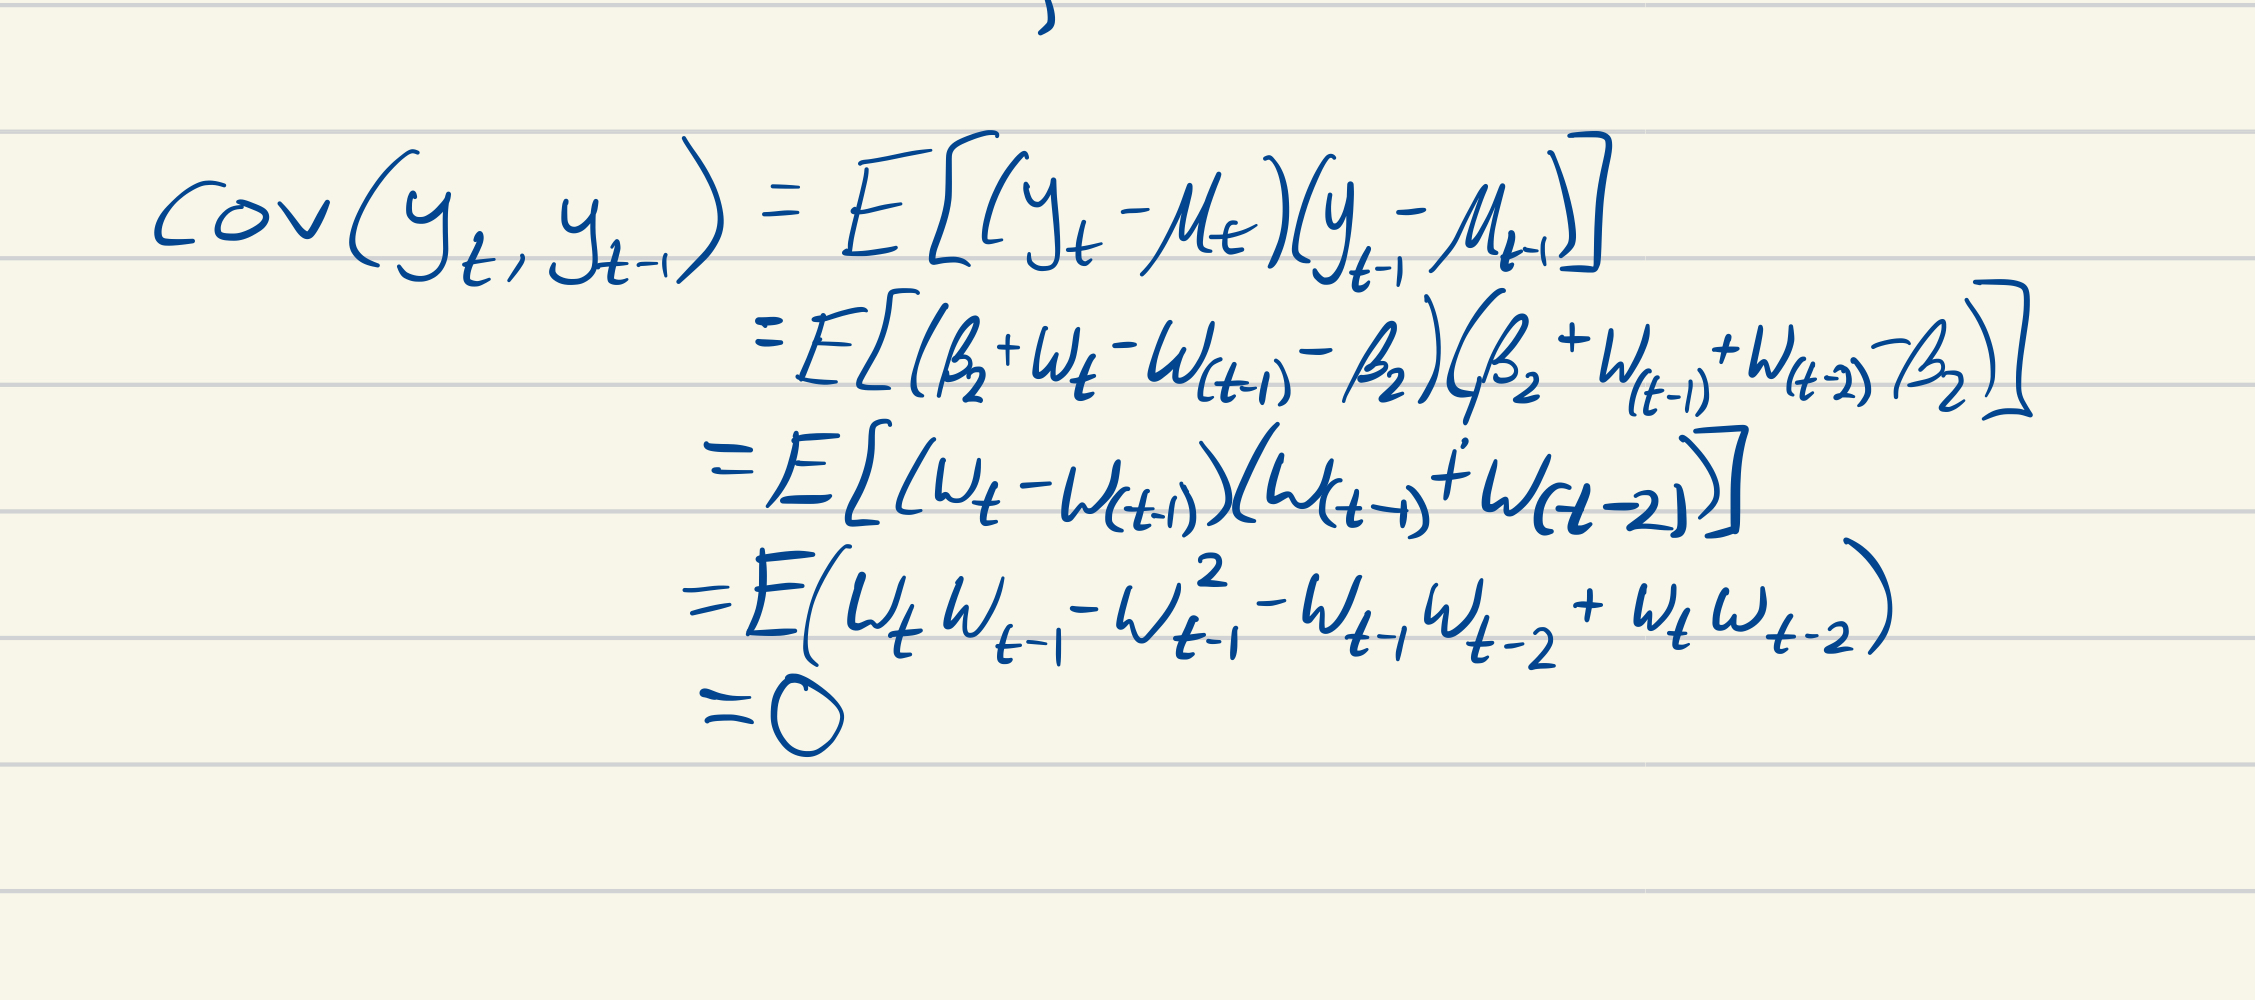 cov(y_t, y_{t-1}) = E[(y_t - μ_t)(y_{t-1} - μ_{t-1})]
= E[(β_2 + w_t - w_{(t-1)} - β_2)(β_2 + w_{(t-1)} + w_{(t-2)} - β_2)]
= E[(w_t - w_{(t-1)})(w_{(t-1)} + w_{(t-2)})]
= E(w_t w_{t-1} - w_{t-1}^2 - w_{t-1} w_{t-2} + w_t w_{t-2})
= 0